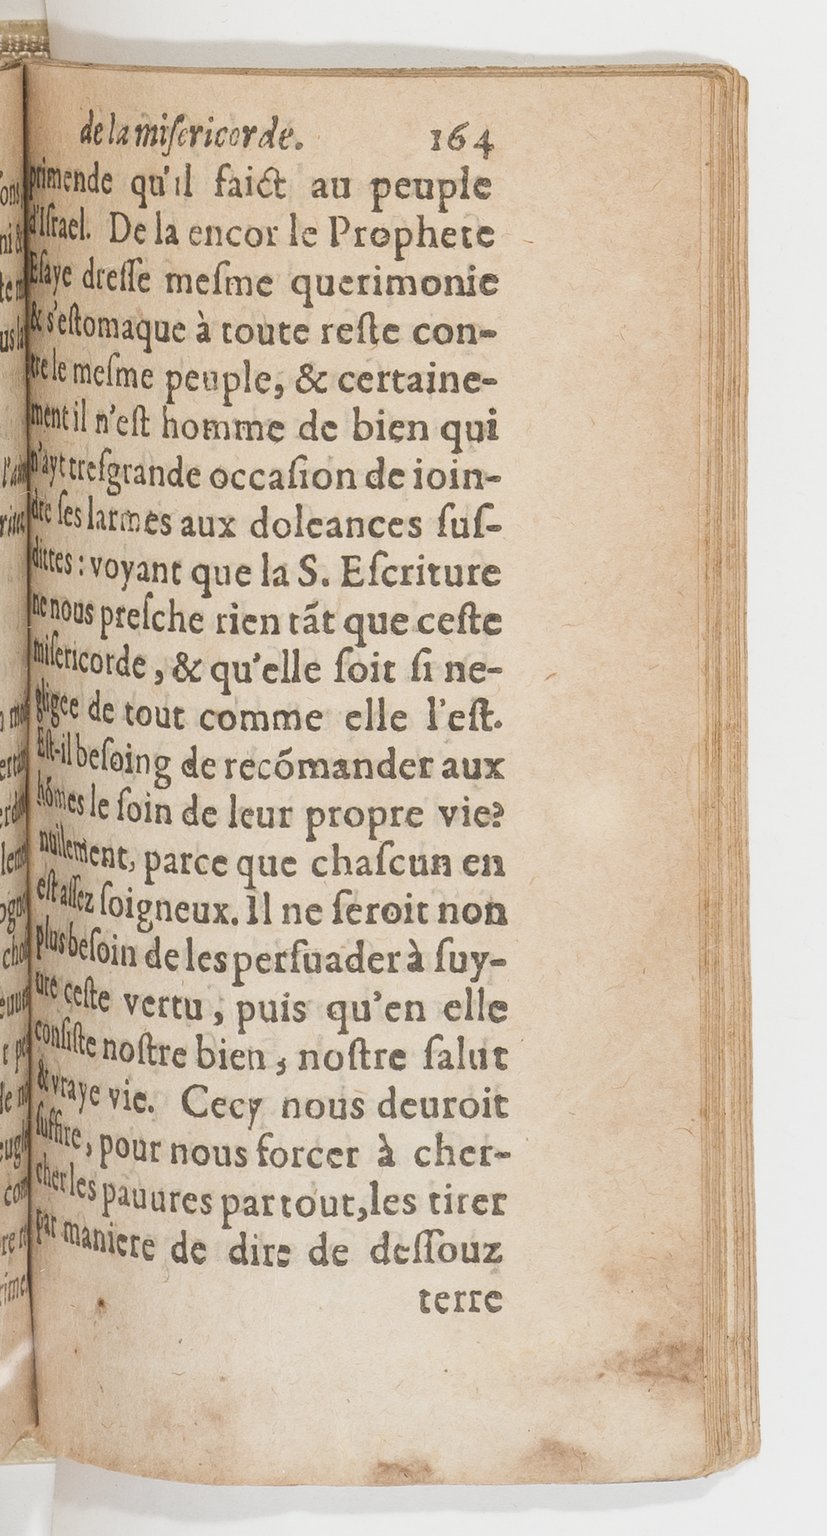 de la miſericorde. 164
primende qu'il faict au peuple
d'Iſrael. De la encor le Prophete
Eſaye dreſſe meſme querimonie
& s'eſtomaque à toute reſte con-
tre le meſme peuple, & certaine-
ment il n'eſt homme de bien qui
n'ayt treſgrande occaſion de ioin-
dre ſes larmes aux doleances ſuſ-
dittes : voyant que la S. Eſcriture
ne nous preſche rien tãt que ceſte
miſericorde, & qu'elle ſoit ſi ne-
gligee de tout comme elle l'eſt.
Eſt-il beſoing de recõmander aux
hõmes le ſoin de leur propre vie?
nullement, parce que chaſcun en
eſt aſſez ſoigneux. Il ne ſeroit non
plus beſoin de les perſuader à ſuy-
ure ceſte vertu, puis qu'en elle
conſiſte noſtre bien, noſtre ſalut
& vraye vie. Cecy nous deuroit
ſuffire, pour nous forcer à cher-
cher les pauures par tout, les tirer
par maniere de dire de deſſouz
terre